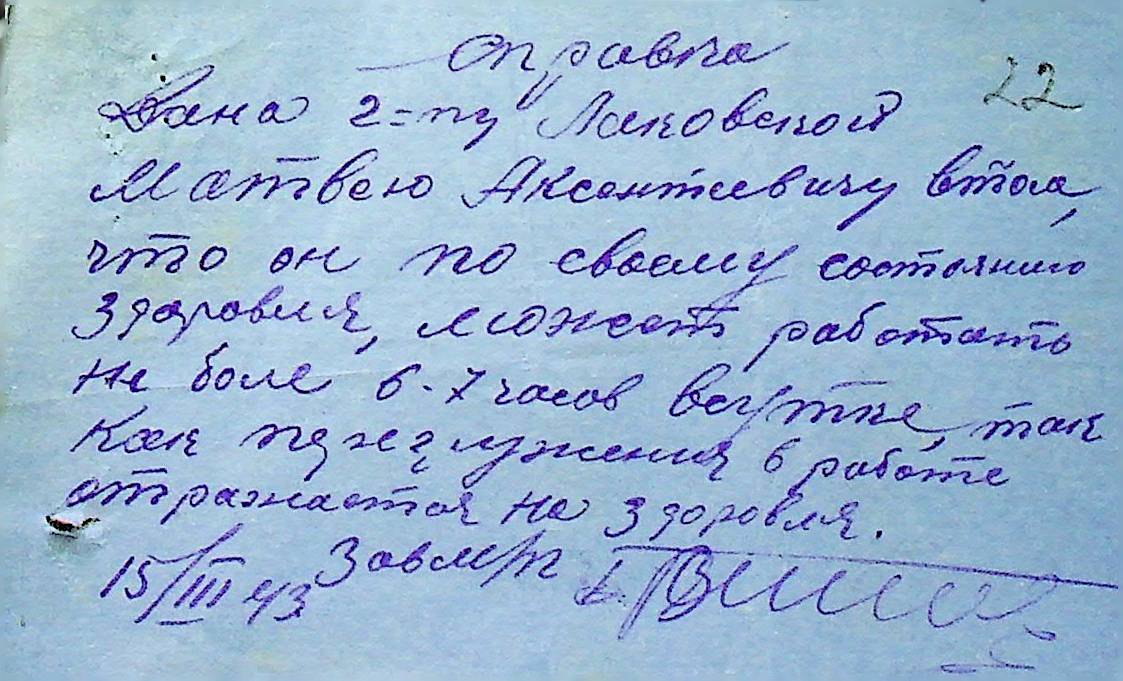 Справка
22
Дана г-ну Лаковской
Матвею Аксентиевичу втом,
что он по своему состоянию
здоровля, может работать
не боле 6-7 часов всутке, так
как в работе
отражается на здоровля.
15/III 43 Завм/п